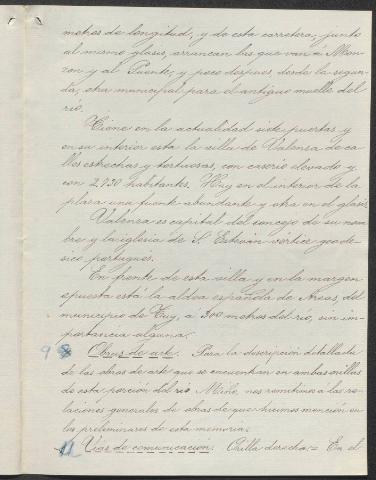 metros de longitud, y de esta carretera, junto
al mismo glasis, arrancan las que van á Mon-
zon y al Puente, y poco despues, desde la segun-
da, otra municipal para el antiguo muelle del
rio.
Tiene en la actualidad siete puertas y
en su interior esta la villa de Valensa de ca-
lles estrechas y tortuosas, con caserio elevado y
con 2.930 habitantes. Hay en el interior de la
plaza una fuente abundante y otra en el glasis.
Valensa es capital del concejo de su nom-
bre y la iglesia de S. Esteván vórtice geode-
sico portugués.
En frente de esta villa y en la margen
opuesta está la aldea española de Areas, del
municipio de Tuy, á 300 metros del rio, sin im-
portancia alguna.
98 Obras de arte. Para la descripcion detallada
de las obras de arte que se encuentran en ambas orillas
de esta porción del rio Miño, nos remitimos á las re-
laciones generales de obras de que hicimos mención en
los preliminares de esta memoria.
Vias de comunicación. Orilla derecha.= En el